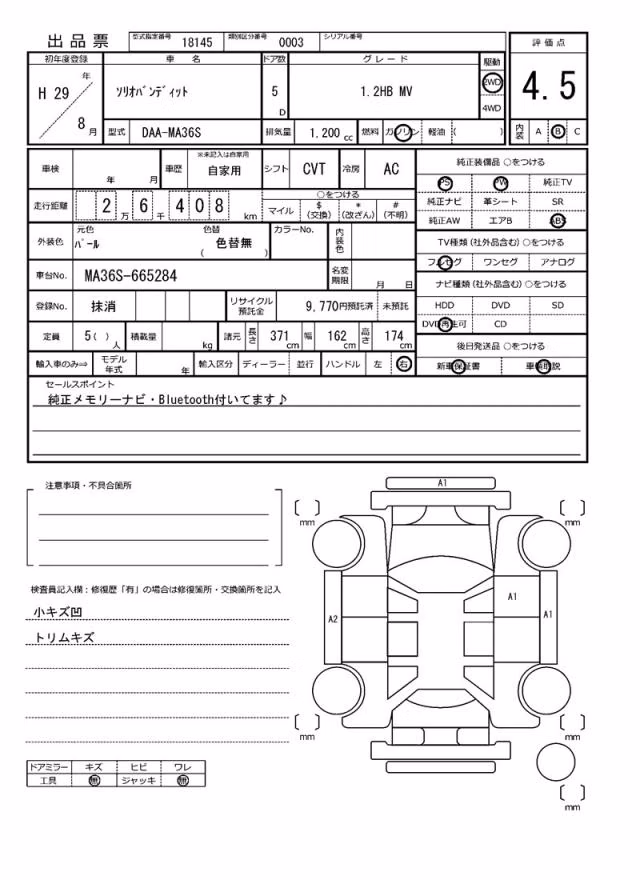 出品票 型式指定番号 18145 類別区分番号 0003 シリアル番号
初年度登録 車 名 ドア数 グレード 駆動 評価点
H 29 年 8 月 ソリオバンディット 5 D 1.2HB MV 2WD 4WD 4.5
型式 DAA-MA36S 排気量 1.200 cc 燃料 ガソリン 軽油 ( ) 内装 A B C
車検 年 月 車歴 ※未記入は自家用 自家用 シフト CVT 冷房 AC
走行距離 2 万 6 千 4 0 8 km ○をつける マイル $(交換) *(改ざん) #(不明)
外装色 元色 パール 色替 ( 色替無 ) カラーNo. 内装色
車台No. MA36S-665284 名変期限 月 日
登録No. 抹消 リサイクル預託金 9,770円預託済 未預託
定員 5( ) 人 積載量 kg 諸元 長さ 371 cm 幅 162 cm 高さ 174 cm
輸入車のみ⇨ モデル年式 年 輸入区分 ディーラー 並行 ハンドル 左 右
純正装備品 ○をつける
PS PW 純正TV
純正ナビ 革シート SR
純正AW エアB ABS
TV種類 (社外品含む) ○をつける
フルセグ ワンセグ アナログ
ナビ種類 (社外品含む) ○をつける
HDD DVD SD
DVD再生可 CD
後日発送品 ○をつける
新車保証書 車輌取説
セールスポイント
純正メモリーナビ・Bluetooth付いてます♪
注意事項・不具合箇所
検査員記入欄：修復歴「有」の場合は修復箇所・交換箇所を記入
小キズ凹
トリムキズ
ドアミラー キズ ヒビ ワレ
工具 無 ジャッキ 無
A1
mm mm
A1
A2 A1
mm mm
mm